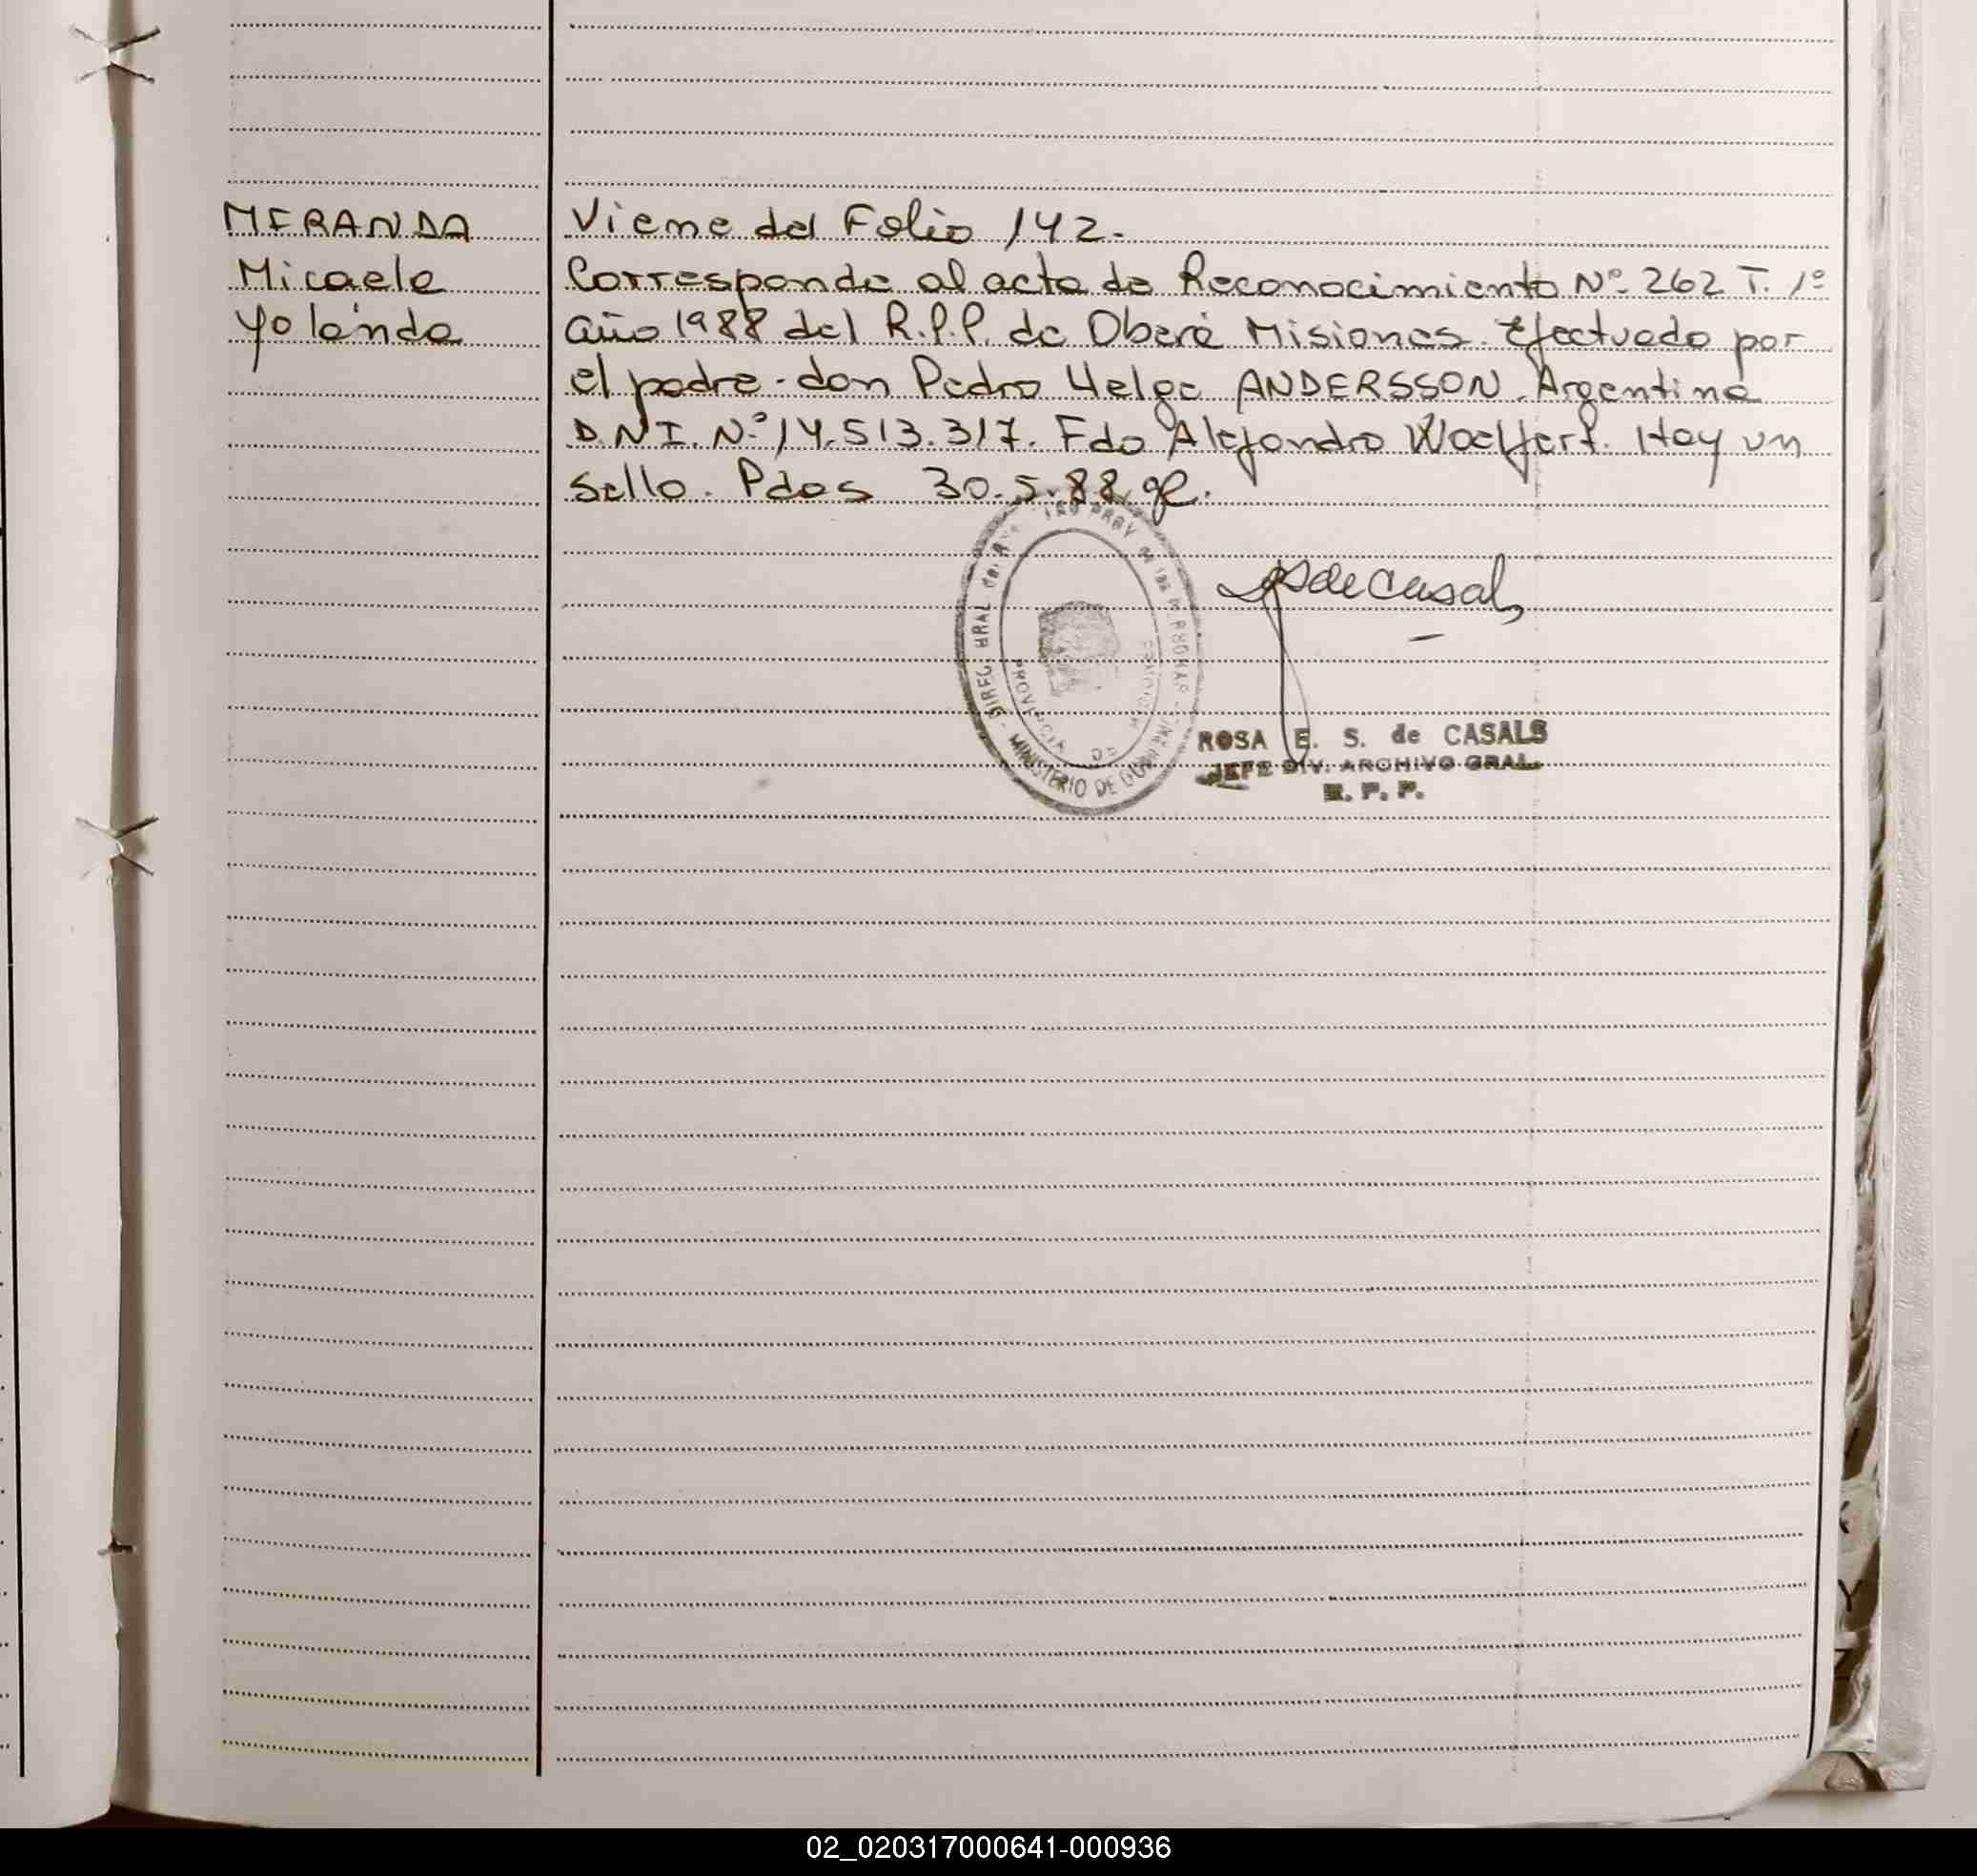 MIRANDA
Micaela
Yolanda
Viene del Folio 142.-
Corresponde al acta de Reconocimiento Nº 262 T. 1º
año 1988 del R.P.P. de Oberá Misiones. Efectuado por
el padre-don Pedro Helge ANDERSSON. Argentino
D.N.I. Nº 14.513.317. Fdo Alejandro Woelfert. Hay un
sello. Pdas 30.5.88
SdeCasals
DIREC. GRAL PROV. DE LAS PERSONAS - MINISTERIO DE
PROVINCIA DE MISIONES
ROSA E. S. de CASALS
JEFE DIV. ARCHIVO GRAL.
R. P. P.
02_020317000641-000936